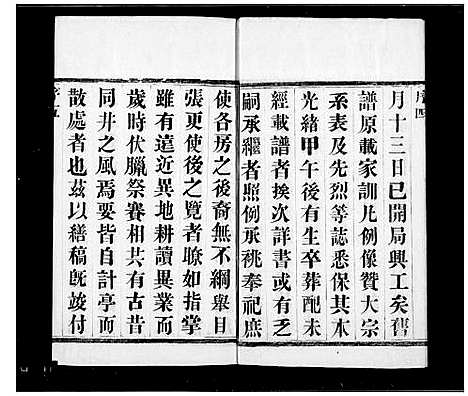 序四
月十三日已開局興工矣舊
譜原載家訓凡例像贊大宗
系表及先烈等誌悉保其本
光緒甲午後有生卒葬配未
經載譜者挨次詳書或有乏
嗣承繼者照例承祧奉祀庶
使各房之後裔無不綱舉目
張更使後之覽者瞭如指掌
雖有遠近異地耕讀異業而
歲時伏臘祭賽相共有古昔
同井之風焉要皆自計亭而
散處者也茲以繕稿既竣付
序五